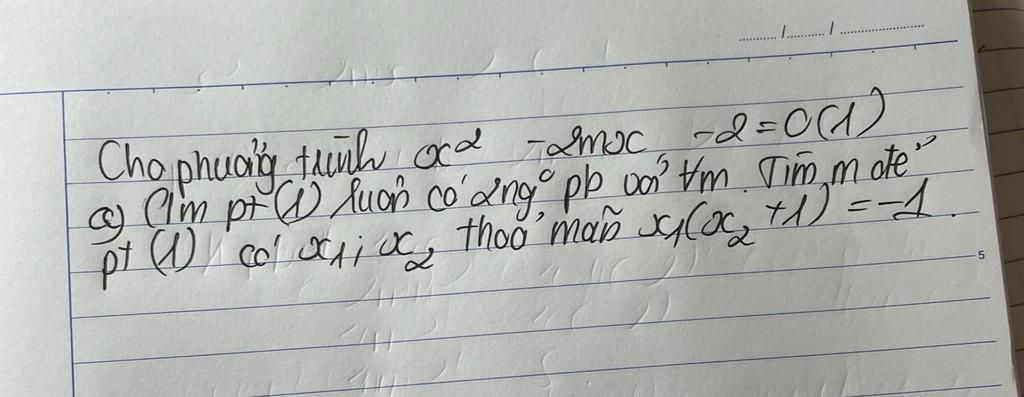 ........../........../..........
Cho phương trình x² - 2mx - 2 = 0 (1)
a) Cm pt (1) luôn có 2 ng° pb với ∀m. Tìm m để
pt (1) có x₁; x₂ thoả mãn x₁(x₂ + 1) = -1.
5